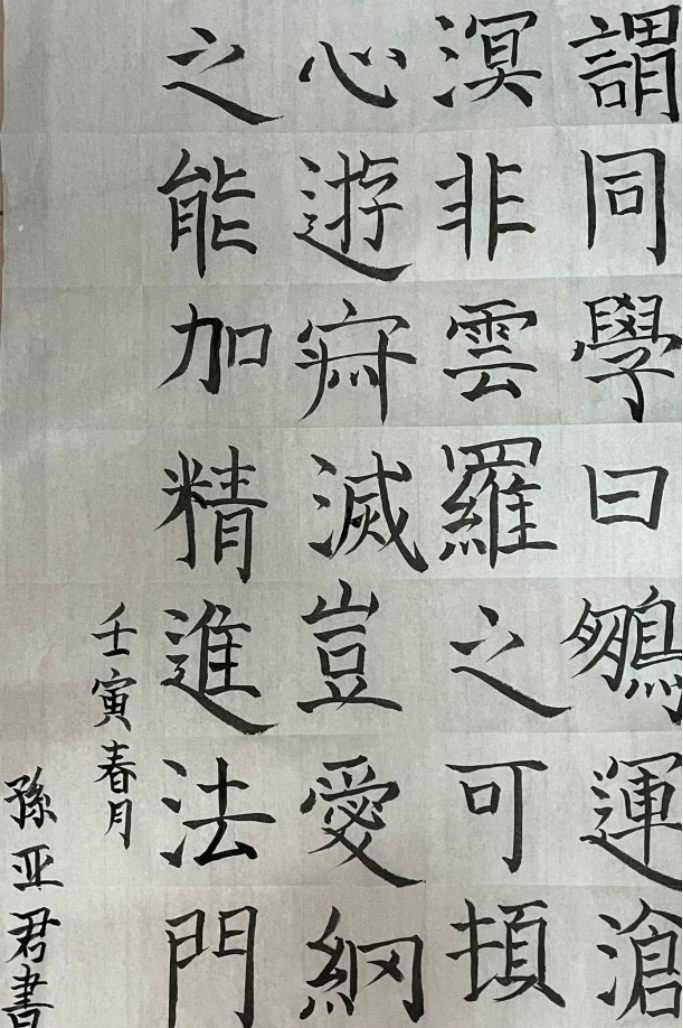 謂同學曰鵬運滄
溟非雲羅之可頓
心遊寂滅豈愛網
之能加精進法門
壬寅春月
孫亚君書